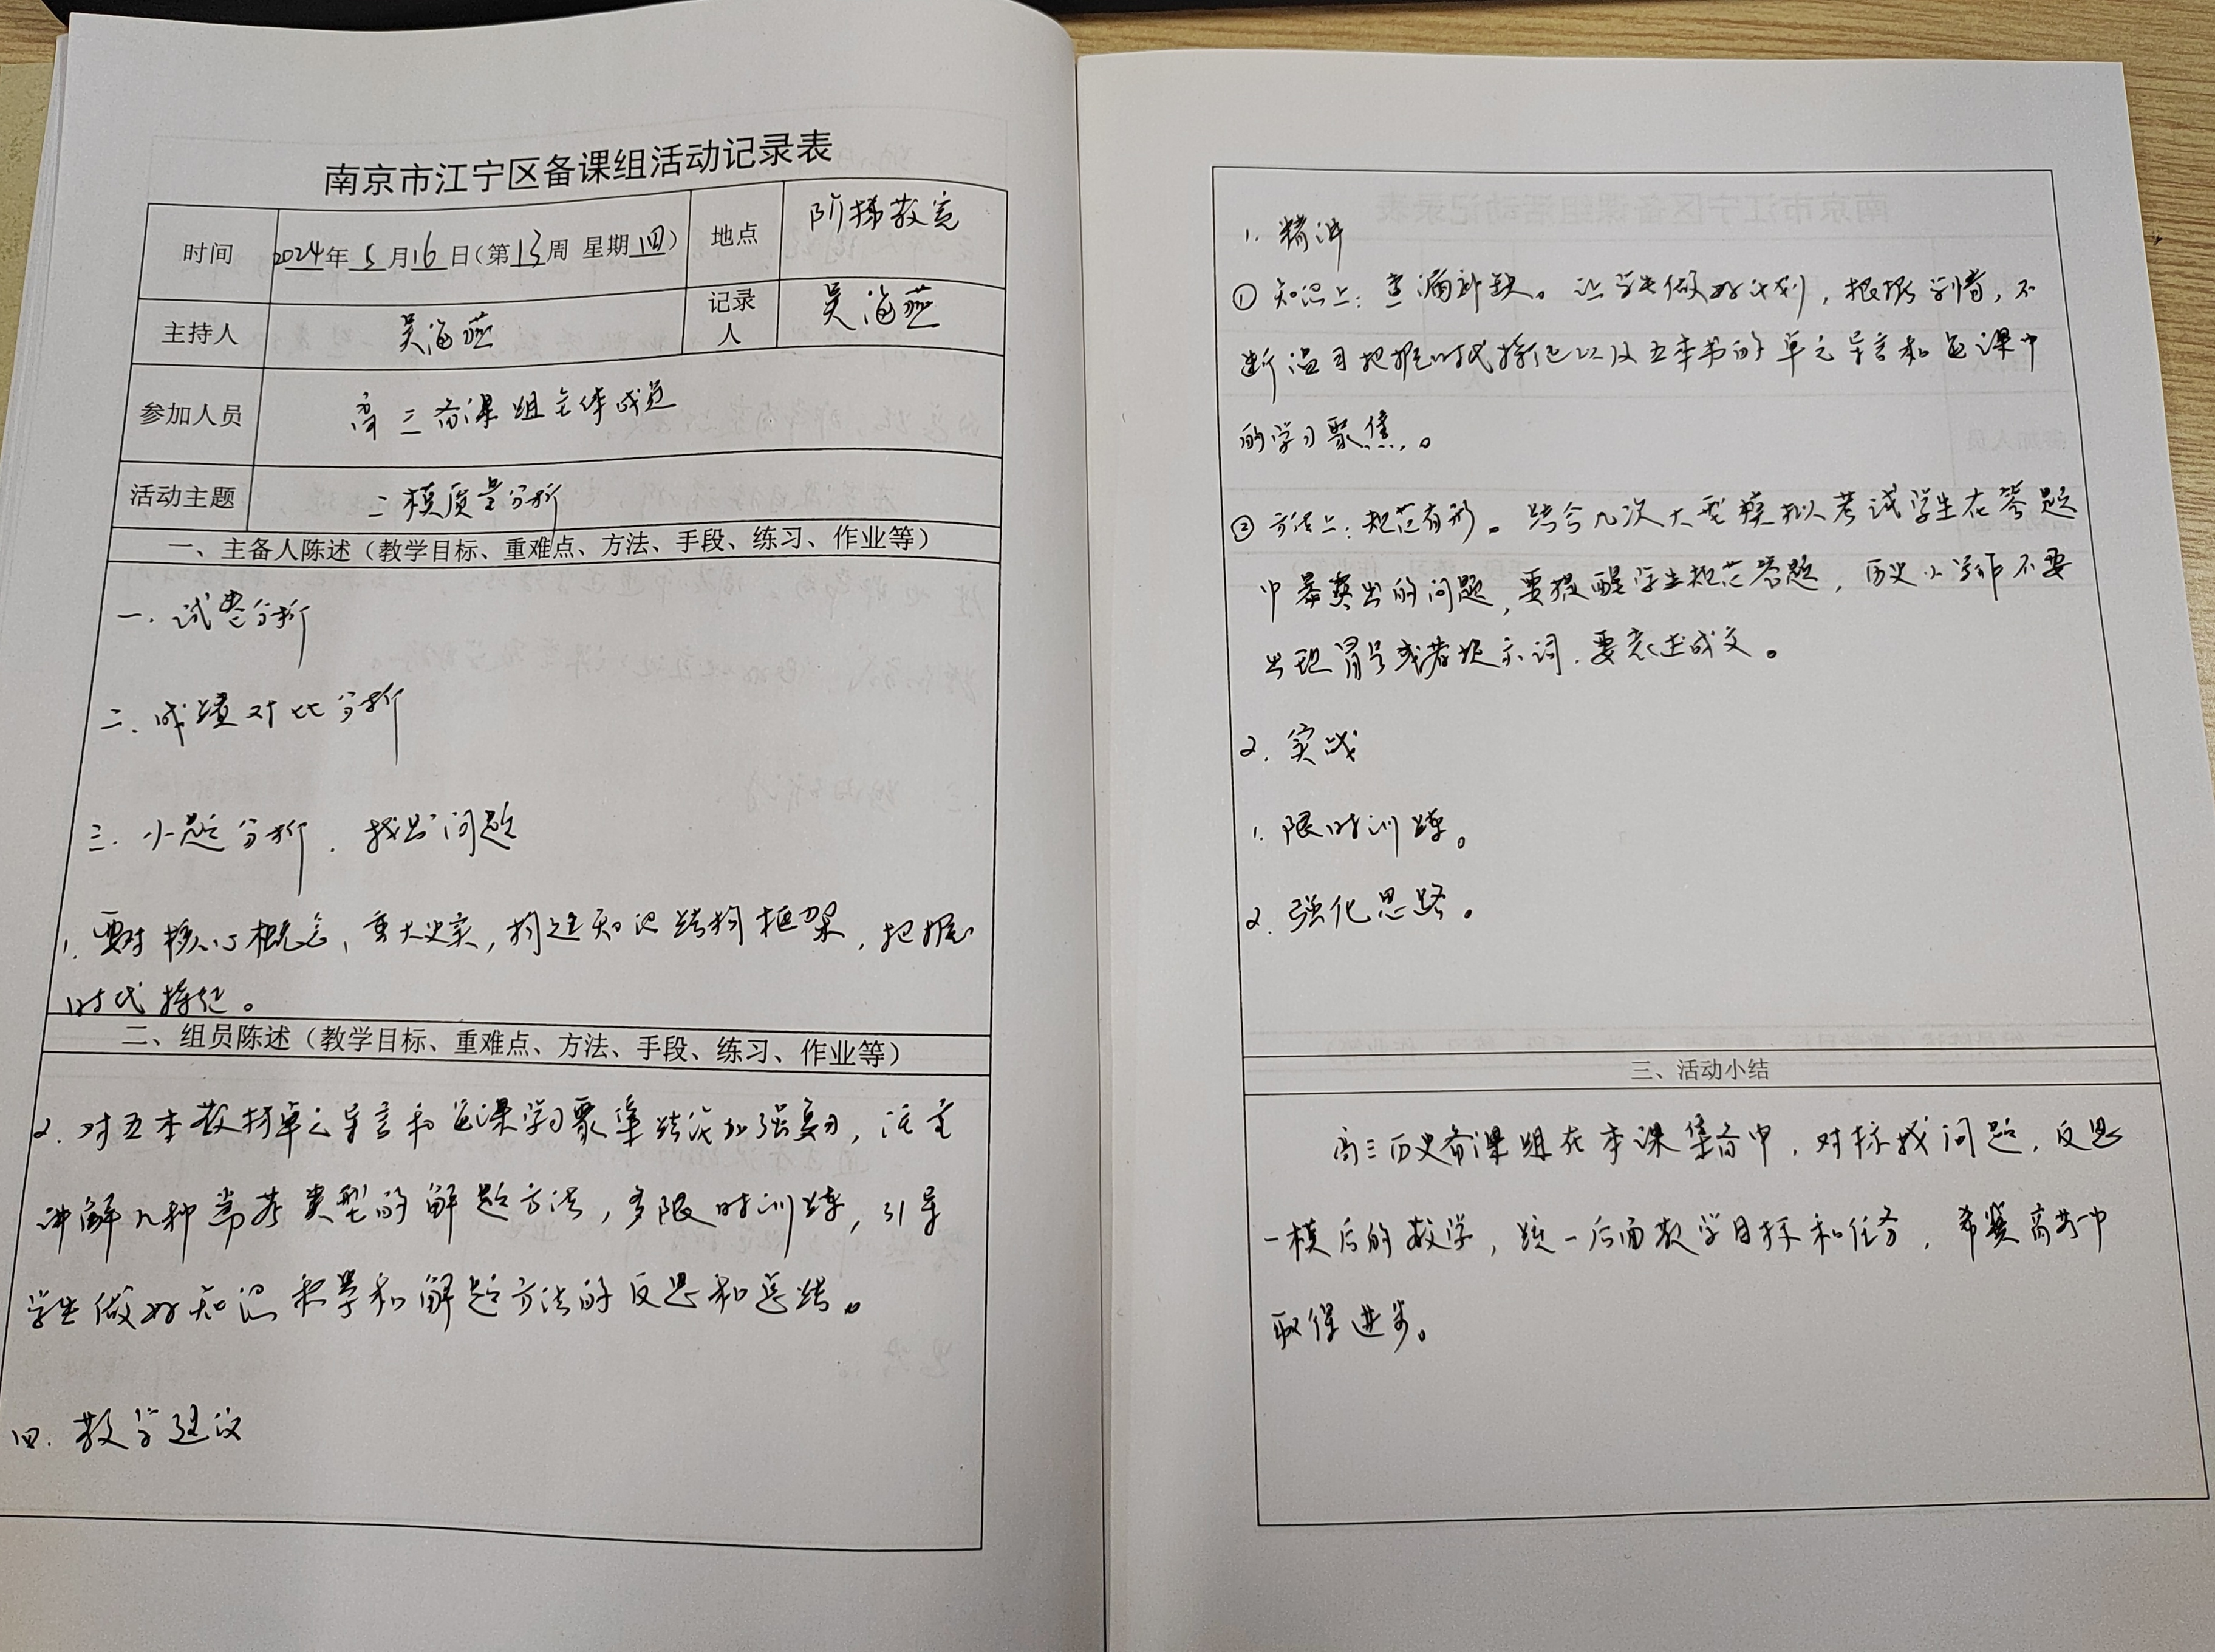 南京市江宁区备课组活动记录表
时间 2024年 5月16日(第13周 星期四) 地点 阶梯教室
主持人 吴海燕 记录人 吴海燕
参加人员 高三备课组全体成员
活动主题 二模质量分析
一、主备人陈述（教学目标、重难点、方法、手段、练习、作业等）
一. 试卷分析
二. 成绩对比分析
三. 小题分析. 找出问题
1. 要对核心概念, 重大史实, 构建知识结构框架, 把握
时代特征。
二、组员陈述（教学目标、重难点、方法、手段、练习、作业等）
2. 对五本教材单元导言和每课学习聚焦 加强复习, 注重
讲解几种常考类型的解题方法, 多限时训练, 引导
学生做好知识积累和解题方法的反思和总结。
四. 教学建议
1. 精讲
① 知识上: 查漏补缺。让学生做好计划, 根据学情, 不
断温习把握时代特征以及五本书的单元导言和每课中
的学习聚焦。
② 方法上: 规范有形。结合几次大型模拟考试学生在答题
中暴露出的问题, 要提醒学生规范答题, 历史小写作不要
出现冒号或者提示词. 要表述成文。
2. 实战
1. 限时训练。
2. 强化思路。
三、活动小结
高三历史备课组在本课集备中. 对标找问题. 反思
一模后的教学, 统一后面教学目标和任务, 希冀高考中
取得进步。